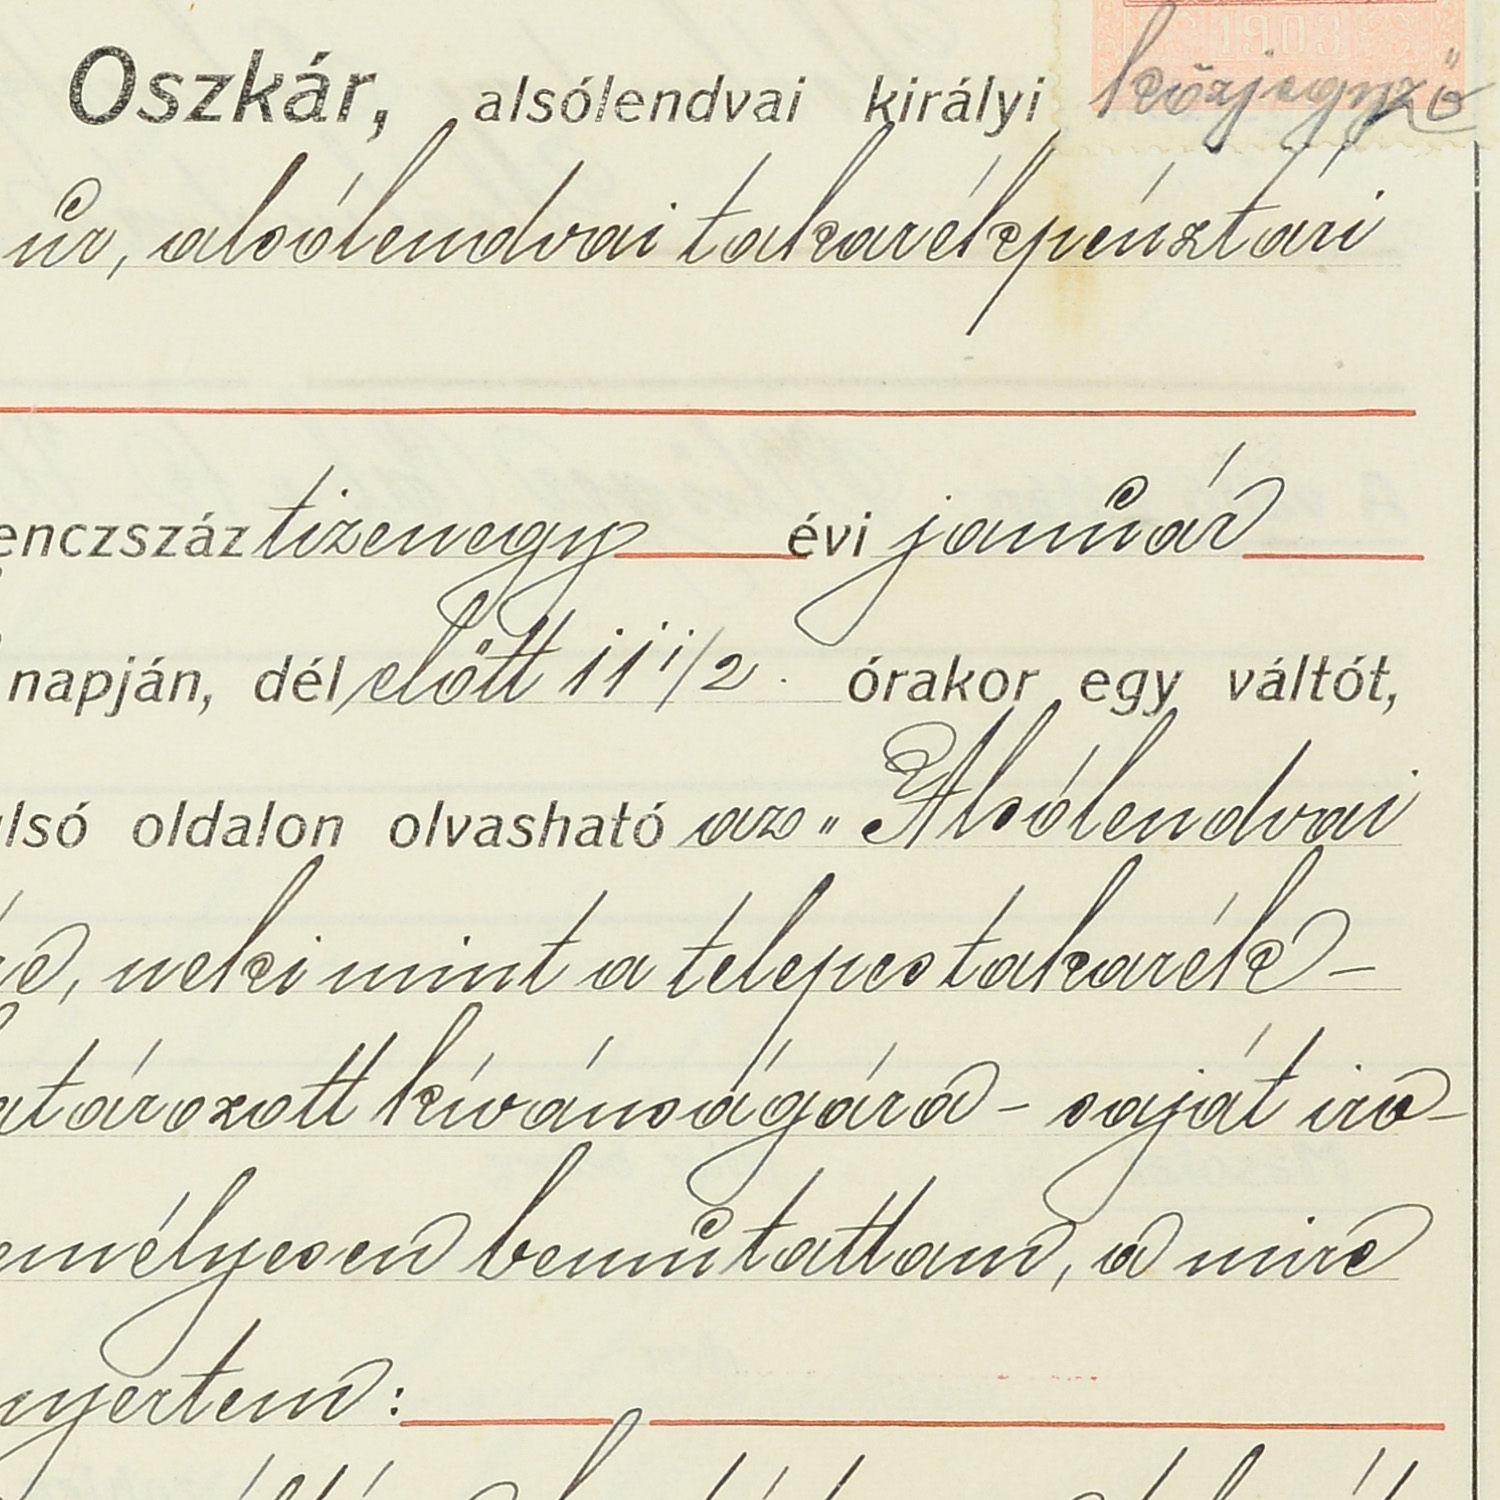 1903
Oszkár, alsólendvai királyi közjegyző
úr, alsólendvai takarékpénztári
enczszáz tizenegy évi január
napján, dél előtt 11 1/2 órakor egy váltót,
ulsó oldalon olvasható az „Alsólendvai
re, neki mint a telepes takarék-
atározott kívánságára - saját iro-
emélyesen bemutattam, a mire
nyertem: